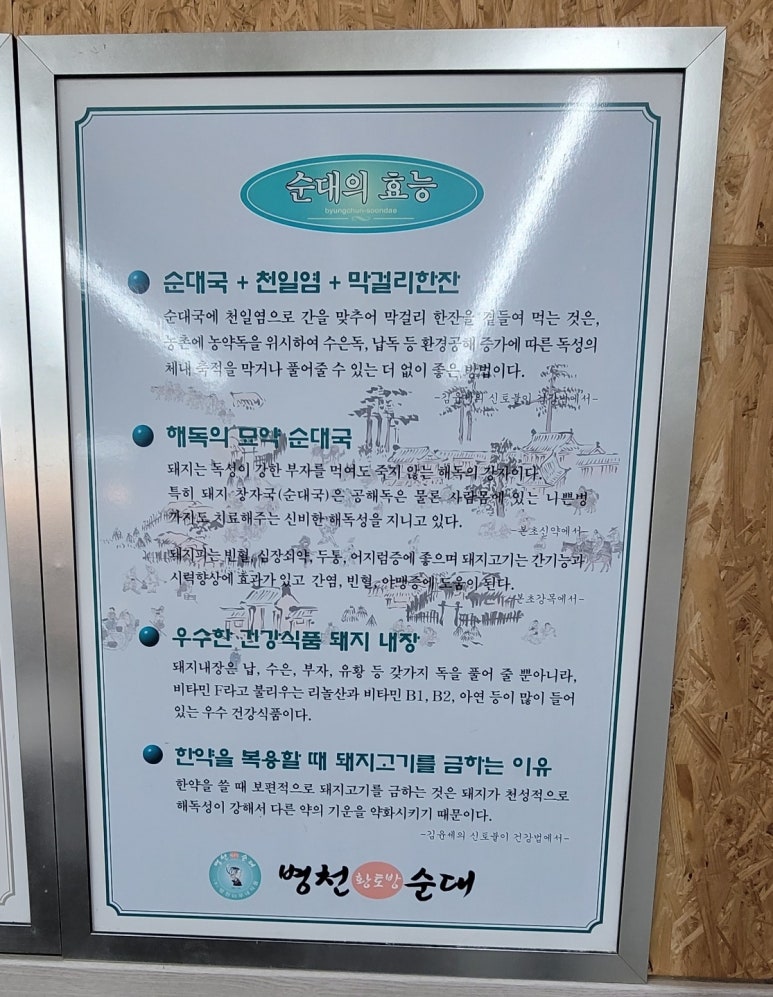 순대의 효능
byungchun-soondae
순대국 + 천일염 + 막걸리한잔
순대국에 천일염으로 간을 맞추어 막걸리 한잔을 곁들여 먹는 것은,
농촌에 농약독을 위시하여 수은독, 납독 등 환경공해 증가에 따른 독성의
체내 축적을 막거나 풀어줄 수 있는 더 없이 좋은 방법이다.
-김윤세의 신토불이 건강법에서-
해독의 묘약 순대국
돼지는 독성이 강한 부자를 먹여도 죽지 않는 해독의 강자이다.
특히 돼지 창자국(순대국)은 공해독은 물론 사람몸에 있는 나쁜병
까지도 치료해주는 신비한 해독성을 지니고 있다.
-본초십약에서-
돼지피는 빈혈, 심장쇠약, 두통, 어지럼증에 좋으며 돼지고기는 간기능과
시력향상에 효과가 있고 간염, 빈혈, 야맹증에 도움이 된다.
-본초강목에서-
우수한 건강식품 돼지 내장
돼지내장은 납, 수은, 부자, 유황 등 갖가지 독을 풀어 줄 뿐아니라,
비타민 F라고 불리우는 리놀산과 비타민 B1, B2, 아연 등이 많이 들어
있는 우수 건강식품이다.
한약을 복용할 때 돼지고기를 금하는 이유
한약을 쓸 때 보편적으로 돼지고기를 금하는 것은 돼지가 천성적으로
해독성이 강해서 다른 약의 기운을 약화시키기 때문이다.
-김윤세의 신토불이 건강법에서-
병천 황토방 순대